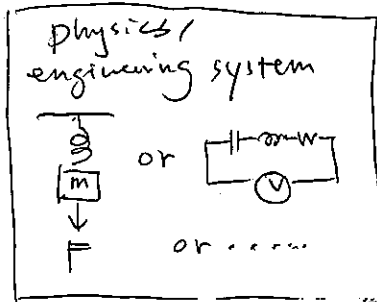 physics/
engineering system
m
or
V
F
or .....